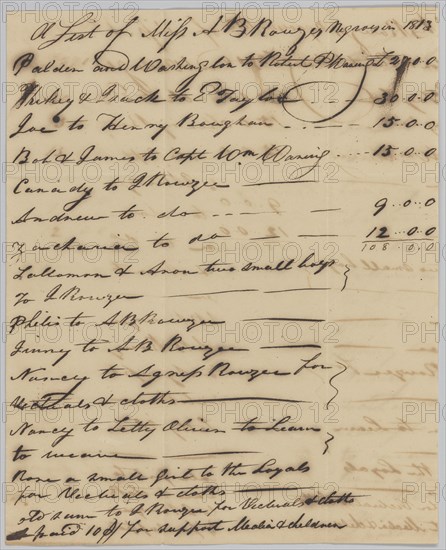 A List of Miss A B Rouzes Negroes in 1813
Palden and Washington to Robert P Rouzee 27.0.0
Mikey & Isack to E Taylor 30.0.0
Joe to Henry Boughan 15.0.0
Bob & James to Capt Wm Waring 15.0.0
Canady to J Rouzee
Andrew to do 9.0.0
Zacharia to do 12.0.0
108 0.0
Sollomon & Aron two small boys
To J Rouzee
Philis to A B Rouzee
Jinney to A B Rouzee
Nancy to Agness Rouzee for
Victuals & cloths
Nancy to Letty Oliver to Learn
to weave
Rose a small girl to the Loyals
for Victuals & cloths
old sam to J Rouzee for Victuals & cloths
paid 10/ for support & children